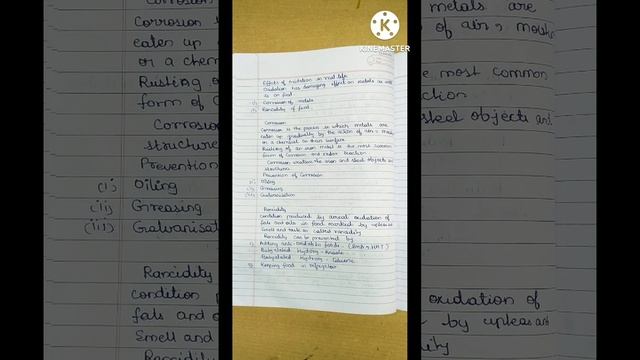 KINEMASTER
Effects of oxidation in real life
Oxidation has damaging effect on metals as well
as on food
(i) Corrosion of metals
(ii) Rancidity of food.
Corrosion
Corrosion is the process in which metals are
eaten up gradually by the action of air, moisture
or a chemical on their surface
Rusting of an iron metal is the most common
form of corrosion and redox reaction
Corrosion weakens the iron and steel objects and
structures
Prevention of Corrosion
(i) Oiling
(ii) Greasing
(iii) Galvanisation
Rancidity
condition produced by aerial oxidation of
fats and oils in food marked by unpleasant
smell and taste is called rancidity
Rancidity can be prevented by
1) Adding anti-oxidants to foods
Butylated Hydroxy - Anisole
Butylated Hydroxy - Toluene
2) Keeping food in refrigerator